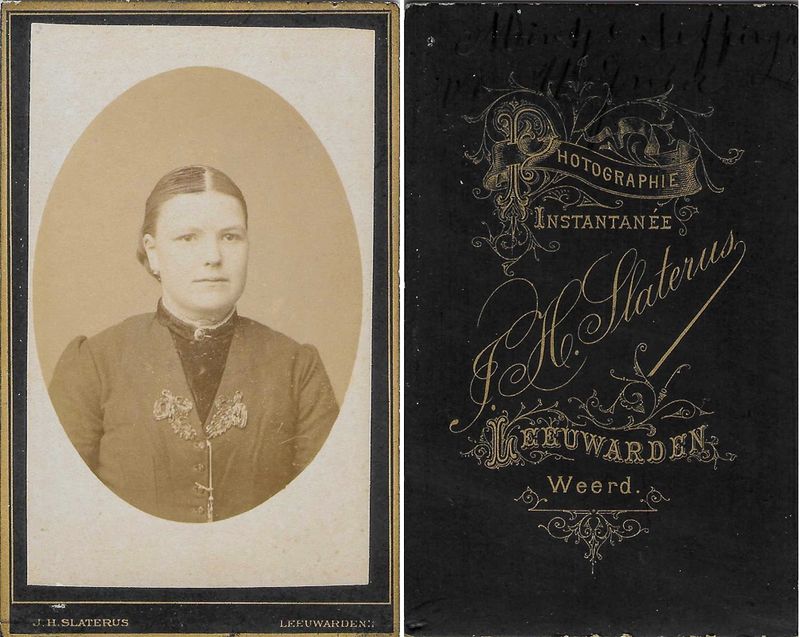 J. H. SLATERUS
LEEUWARDEN
PHOTOGRAPHIE
INSTANTANÉE
J. H. Slaterus
LEEUWARDEN
Weerd.